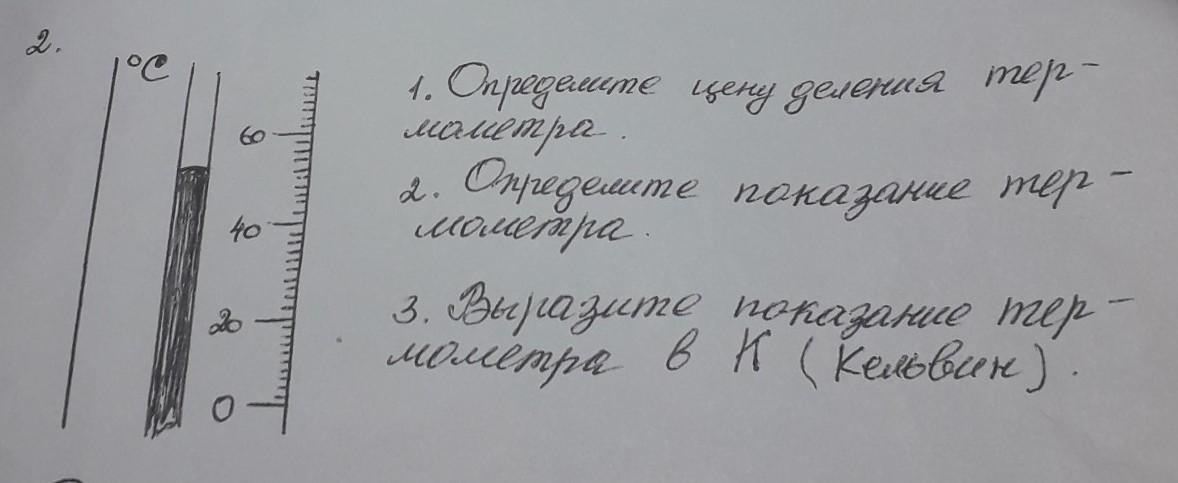 2.
°C
60
40
20
0
1. Определите цену деления тер-
мометра.
2. Определите показание тер-
мометра.
3. Выразите показание тер-
мометра в К (Кельвин).